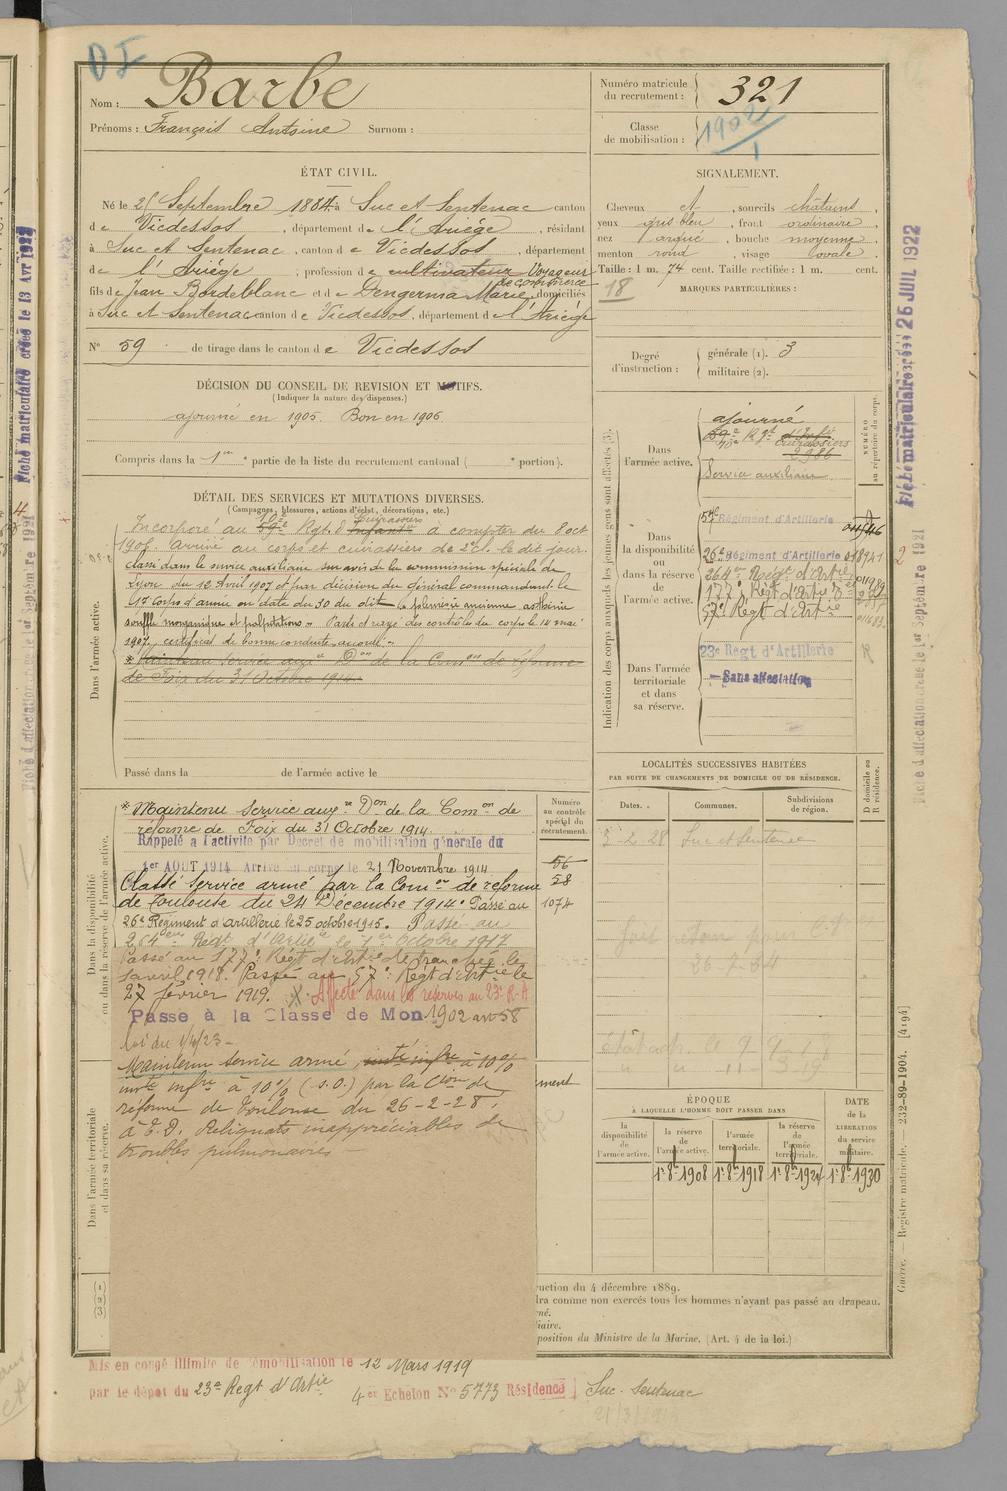 DI
Nom : Barbe
Prénoms : François Antoine Surnom :
Numéro matricule
du recrutement : 321
Classe
de mobilisation : 1902/1
ÉTAT CIVIL.
Né le 25 Septembre 1884 à Suc et Sentenac canton
de Vicdessos, département de l'Ariège, résidant
à Suc et Sentenac, canton de Vicdessos, département
de l'Ariège, profession de cultivateur Voyageur
de commerce
fils de Jean Bordeblanc et de Dengerma Marie, domiciliés
à Suc et Sentenac canton de Vicdessos, département de l'Ariège
N° 59 de tirage dans le canton de Vicdessos
SIGNALEMENT.
Cheveux et, sourcils châtains,
yeux gris-bleu, front ordinaire,
nez arqué, bouche moyenne,
menton rond, visage ovale.
Taille : 1 m. 74 cent. Taille rectifiée : 1 m. cent.
18
MARQUES PARTICULIÈRES :
Degré
d'instruction :
générale (1). 3
militaire (2).
DÉCISION DU CONSEIL DE REVISION ET MOTIFS.
(Indiquer la nature des dispenses.)
ajourné en 1905. Bon en 1906.
Compris dans la 1re partie de la liste du recrutement cantonal ( e portion).
DÉTAIL DES SERVICES ET MUTATIONS DIVERSES.
(Campagnes, blessures, actions d'éclat, décorations, etc.)
Dans l'armée active.
10e Cuirassiers
Incorporé au 59e Regt. d'Infanterie à compter du 8 oct
1906. Arrivé au corps et cuirassiers de 2e cl. le dit jour.
classé dans le service auxiliaire sur avis de la commission spéciale de
Lyon du 12 Avril 1907 et par décision du général commandant le
17 Corps d'armée en date du 30 du dit
souffle inorganique et palpitations. Parti et rayé des contrôles du corps le 14 mai
1907. certificat de bonne conduite accordé.
* Maintenu service auxre Don de la Comon de réforme
de Foix du 31 Octobre 1914.
Passé dans la de l'armée active le
Indication des corps auxquels les jeunes gens sont affectés (3).
NUMÉRO
au répertoire du corps.
Dans
l'armée active.
ajourné
59e Rgt d'Infie
Cuirassiers
2986
Service auxiliaire
Dans
la disponibilité
ou
dans la réserve
de
l'armée active.
57e Régiment d'Artillerie
26e Régiment d'Artillerie 018941
264me Régt d'Artie
177e Régt d'Artie
57e Regt d'Artie
Dans l'armée
territoriale
et dans
sa réserve.
23e Regt d'Artillerie R
Sans affectation
Dans la disponibilité
ou dans la réserve de l'armée active.
Numéro
au contrôle
spécial du
recrutement.
* Maintenu service auxre Don de la Comon de
réforme de Foix du 31 Octobre 1914.
Rappelé à l'activité par Décret de mobilisation générale du
1er AOUT 1914 Arrivé au corps le 21 Novembre 1914
56
Classé service armé par la Comon de réforme
58
de Toulouse du 24 Décembre 1914. Passé au
1074
26e Régiment d'artillerie le 25 octobre 1915. Passé au
264eme Régt d'Artie le 1er Octobre 1917
Passé au 177e Régt d'Artie de tranchée le
1er avril 1918. Passé au 57e Regt d'Artie le
27 février 1919. X Affecté dans les réserves au 23e R.A
Passé à la Classe de Mon 1902 art 58
loi du 1/4/23
Maintenu service armé, invté infre à 10%
invté infre à 10% (s.o.) par la Cion de
réforme de Toulouse du 26-2-28.
à T.D. Reliquats inappréciables de
troubles pulmonaires
ment
Dans l'armée territoriale
et dans sa réserve.
(1)
(2)
(3)
LOCALITÉS SUCCESSIVES HABITÉES
PAR SUITE DE CHANGEMENTS DE DOMICILE OU DE RÉSIDENCE.
Dates.
Communes.
Subdivisions
de région.
D domicile ou
R résidence.
3-2-28 Suc et Sentenac
ÉPOQUE
À LAQUELLE L'HOMME DOIT PASSER DANS
DATE
de la
LIBÉRATION
du service
militaire.
la
disponibilité
de
l'armée active.
la réserve
de
l'armée active.
l'armée
territoriale.
la réserve
de
l'armée
territoriale.
1r 8b 1908
1r 8b 1918
1r 8b 1924
1r 8b 1930
ruction du 4 décembre 1889.
dra comme non exercés tous les hommes n'ayant pas passé au drapeau.
né.
liaire.
position du Ministre de la Marine. (Art. 4 de la loi.)
Mis en congé illimité de démobilisation le 12 Mars 1919
par le dépot du 23e Regt d'Artie 4er Echelon N° 5773 Résidence Suc-Sentenac
21/3/1919
Fiche matriculaire créée le 13 Avr 1922
Fiche d'affectation créée le 1er Septembre 1921
Fiche matriculaire créée 26 JUIL 1922
Fiche d'affectation créée le 1er Septembre 1921
2
Guerre. — Registre matricule. — 232-89-1904. [4194]